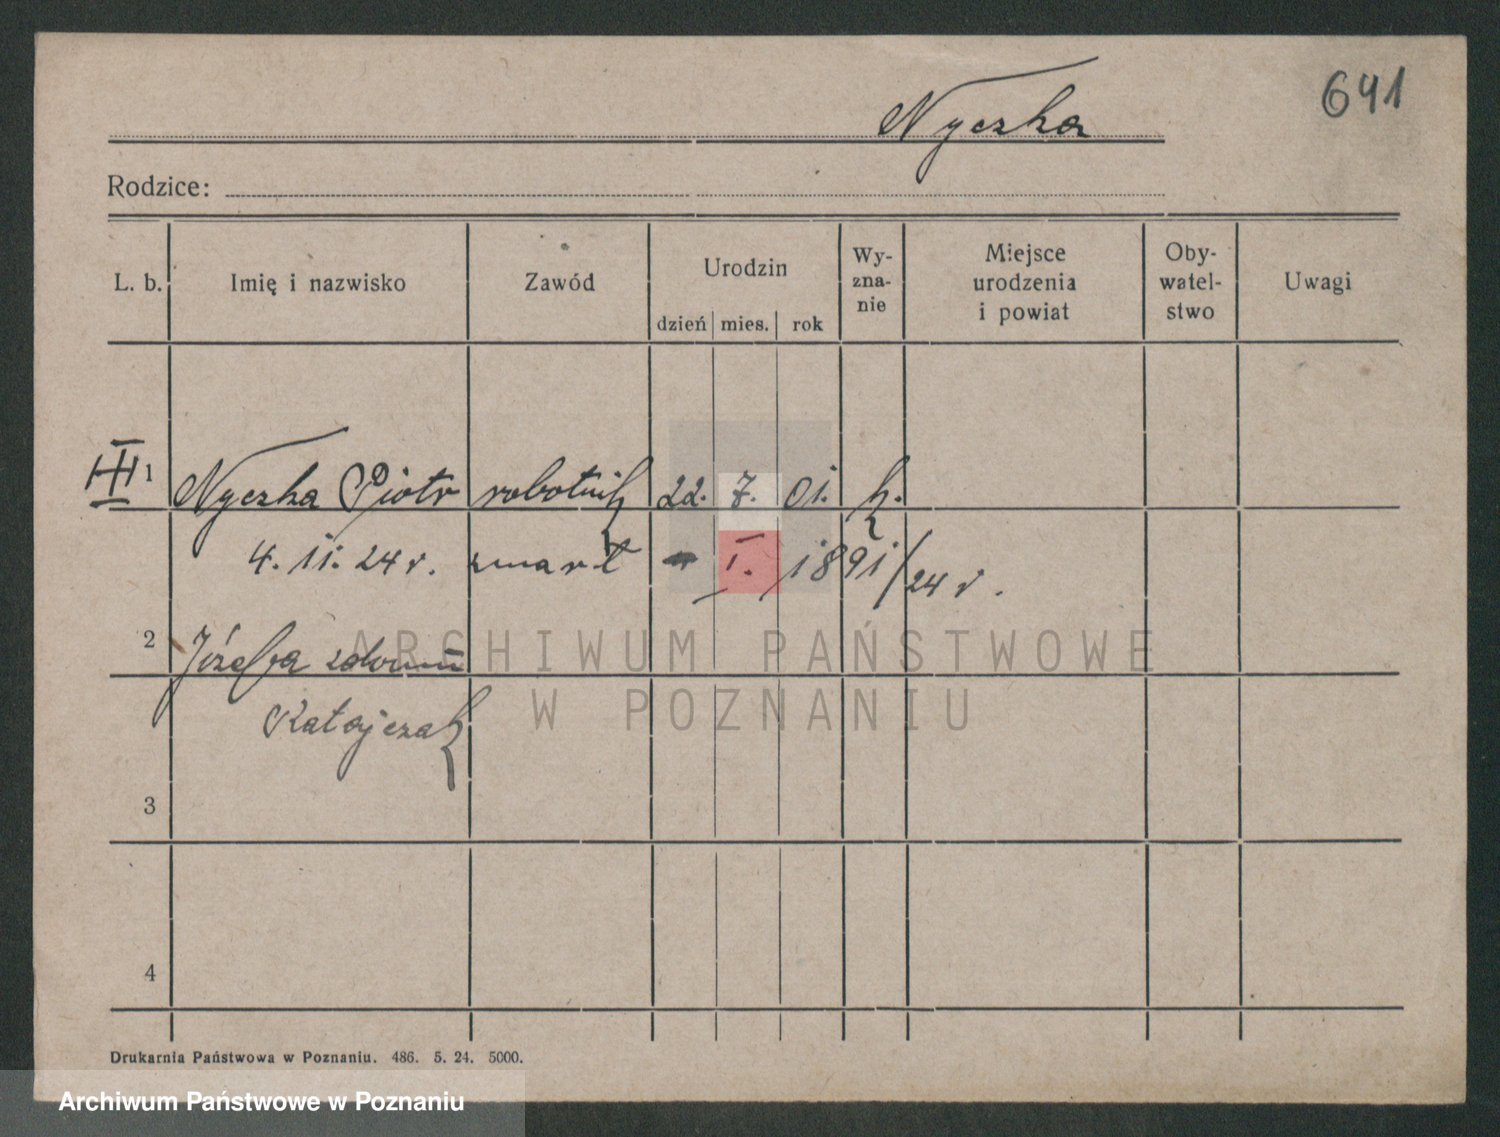 641
Nyczka
Rodzice:
L. b. Imię i nazwisko Zawód Urodzin dzień mies. rok Wy-zna-nie Miejsce urodzenia i powiat Oby-watel-stwo Uwagi
III 1 Nyczka Piotr robotnik 22. 7. 01. k.
4. 11. 24 r. zmarł I. 1891/24 r.
2 Józefa
ARCHIWUM PAŃSTWOWE
W POZNANIU
Ratajczak
3
4
Drukarnia Państwowa w Poznaniu. 486. 5. 24. 5000.
Archiwum Państwowe w Poznaniu